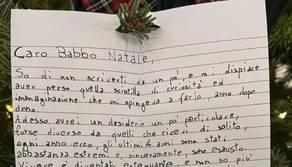 Caro Babbo Natale,
So di non scriverti da un po', e mi dispiace
aver perso quella scintilla di curiosità ed
immaginazione che mi spingeva a farlo, anno dopo
anno.
Adesso, avrei un desiderio un po' particolare,
forse diverso da quelli che ricevi di solito,
ogni anno ecco, gli ultimi 4 anni sono stati
abbastanza estremi e, sinceramente, sono esausto.
Vivere è diventato estenuante e non ho più